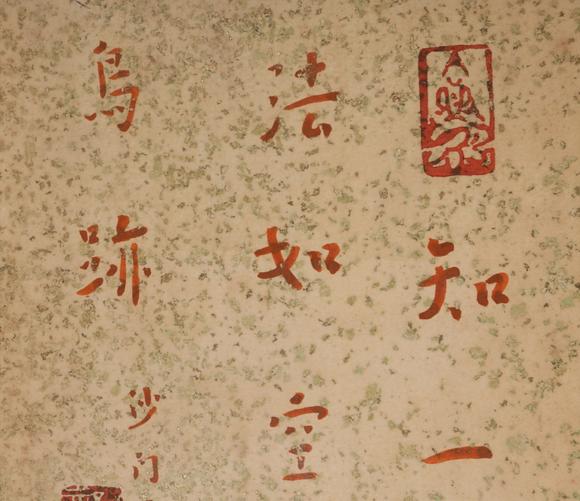 知一
法如空
鳥跡
沙門